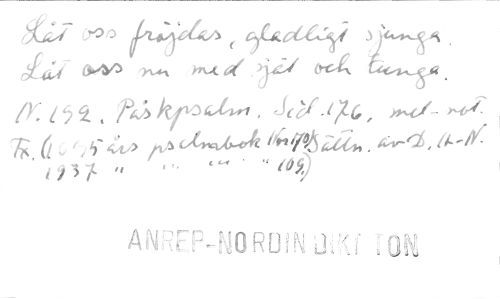 Låt oss fröjdas, gladligt sjunga.
Låt oss nu med själ och tunga.
N. 192. Påskpsalm. Sid. 176, mel-not.
Tx. (1695 års psalmbok Nr 170) Sättn. av D. A-N.
1937 " " " " 109.)
ANREP-NORDIN DIKT TON